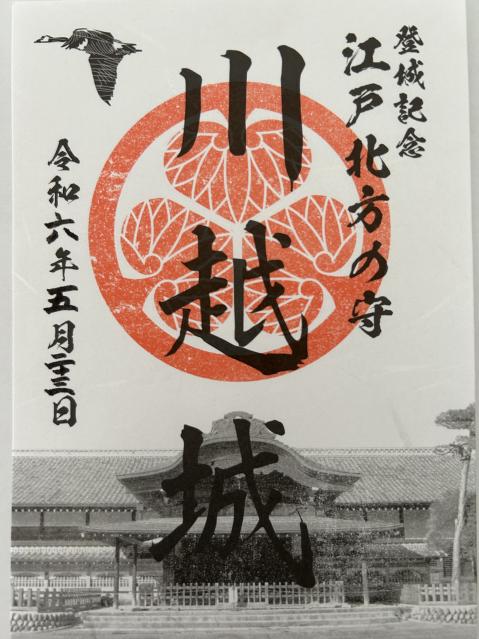 登城記念
江戸北方の守
川越城
令和六年五月二十三日